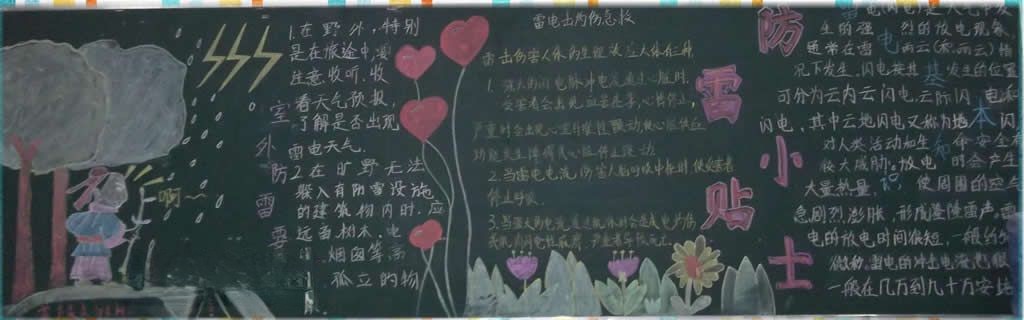 啊~
室外防雷要
1.在野外,特别
是在旅途中,要
注意收听、收
看天气预报,
了解是否出现
雷电天气.
2.在旷野无法
躲入有防雷设施
的建筑物内时.应
远离树木、电
、烟囱等高
、孤立的物
雷电击为伤急救
雷击伤害人体的生
1.强大的闪电脉冲电流通过心脏时,
受害者会出现血管痉挛,心搏停止,
严重时会出现心室纤维性颤动,使心脏供血
功能发生障碍或心脏停止跳动.
2.当雷电电流伤害大脑时,使受害者
停止呼吸.
3.当强大的电流通过肌体时会造成电灼伤
防雷小贴士
雷电基本知识
雷电(闪电)是大气中发
生的强烈的放电现象
通常在雷雨云(积雨云)情
况下发生.闪电按其发生的位置
可分为云内云闪电,云际闪电和
闪电,其中云地闪电又称为地闪
对人类活动和生命安全有
较大威胁.放电时会产生
大量热量,使周围的空气
急剧膨胀,形成隆隆雷声.雷
电的放电时间很短,一般约
微秒.当电的冲击电流
一般在几万到几十万安培